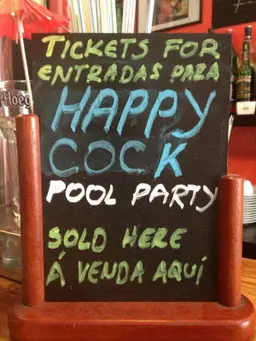 TICKETS FOR
ENTRADAS PARA
HAPPY
COCK
POOL PARTY
SOLD HERE
Á VENDA AQUÍ